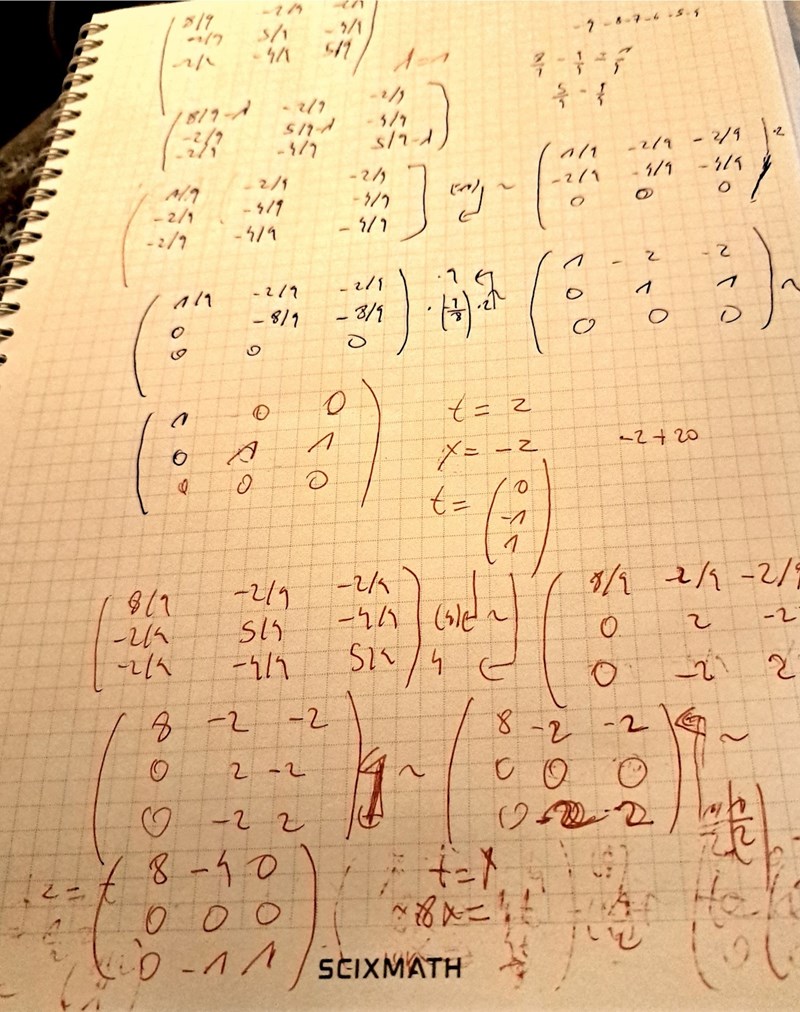 8/9 -2/9 -2/9
-2/9 5/9 -4/9
-2/9 -4/9 5/9
-9-8-7-6-5-4
λ=1
8/9 - 9/9 = 1/9
5/9 - 9/9
8/9-λ -2/9 -2/9
-2/9 5/9-λ -4/9
-2/9 -4/9 5/9-λ
1/9 -2/9 -2/9
-2/9 -4/9 -4/9
-2/9 -4/9 -4/9
(-1) ~
1/9 -2/9 -2/9 ·2
-2/9 -4/9 -4/9
0 0 0
1/9 -2/9 -2/9 ·9
0 -8/9 -8/9 ·(-9/8) ·2 ~
0 0 0
1 -2 -2
0 1 1 ~
0 0 0
1 0 0
0 1 1
0 0 0
t = 2
x = -2
-2+20
t = 0
-1
1
8/9 -2/9 -2/9
-2/9 5/9 -4/9 (4) ~
-2/9 -4/9 5/9 4
8/9 -2/9 -2/9
0 2 -2
0 -2 2
8 -2 -2
0 2 -2 ~
0 -2 2
8 -2 -2 ~
0 0 0
0 -2
8 -4 0
0 0 0
0 -1 1
2 = t
t = x
8x =
SCIXMATH